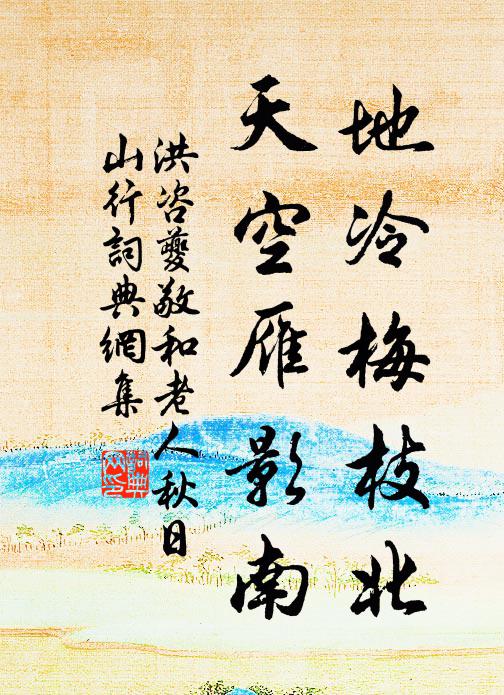 地冷梅枝北
天空雁影南
洪咨夔敬和老人秋日
山行詞典網集